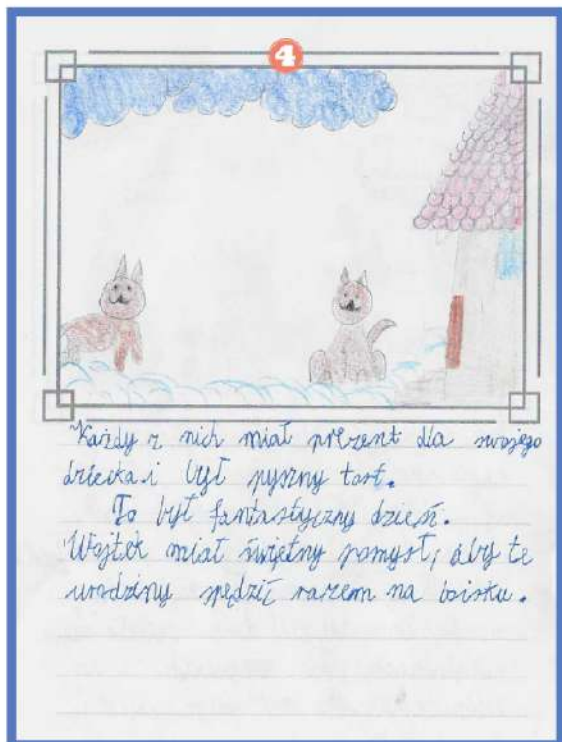 4
Każdy z nich miał prezent dla swojego
dziecka i był pyszny tort.
To był fantastyczny dzień.
Wojtek miał świetny pomysł, aby te
urodziny spędzić razem na boisku.